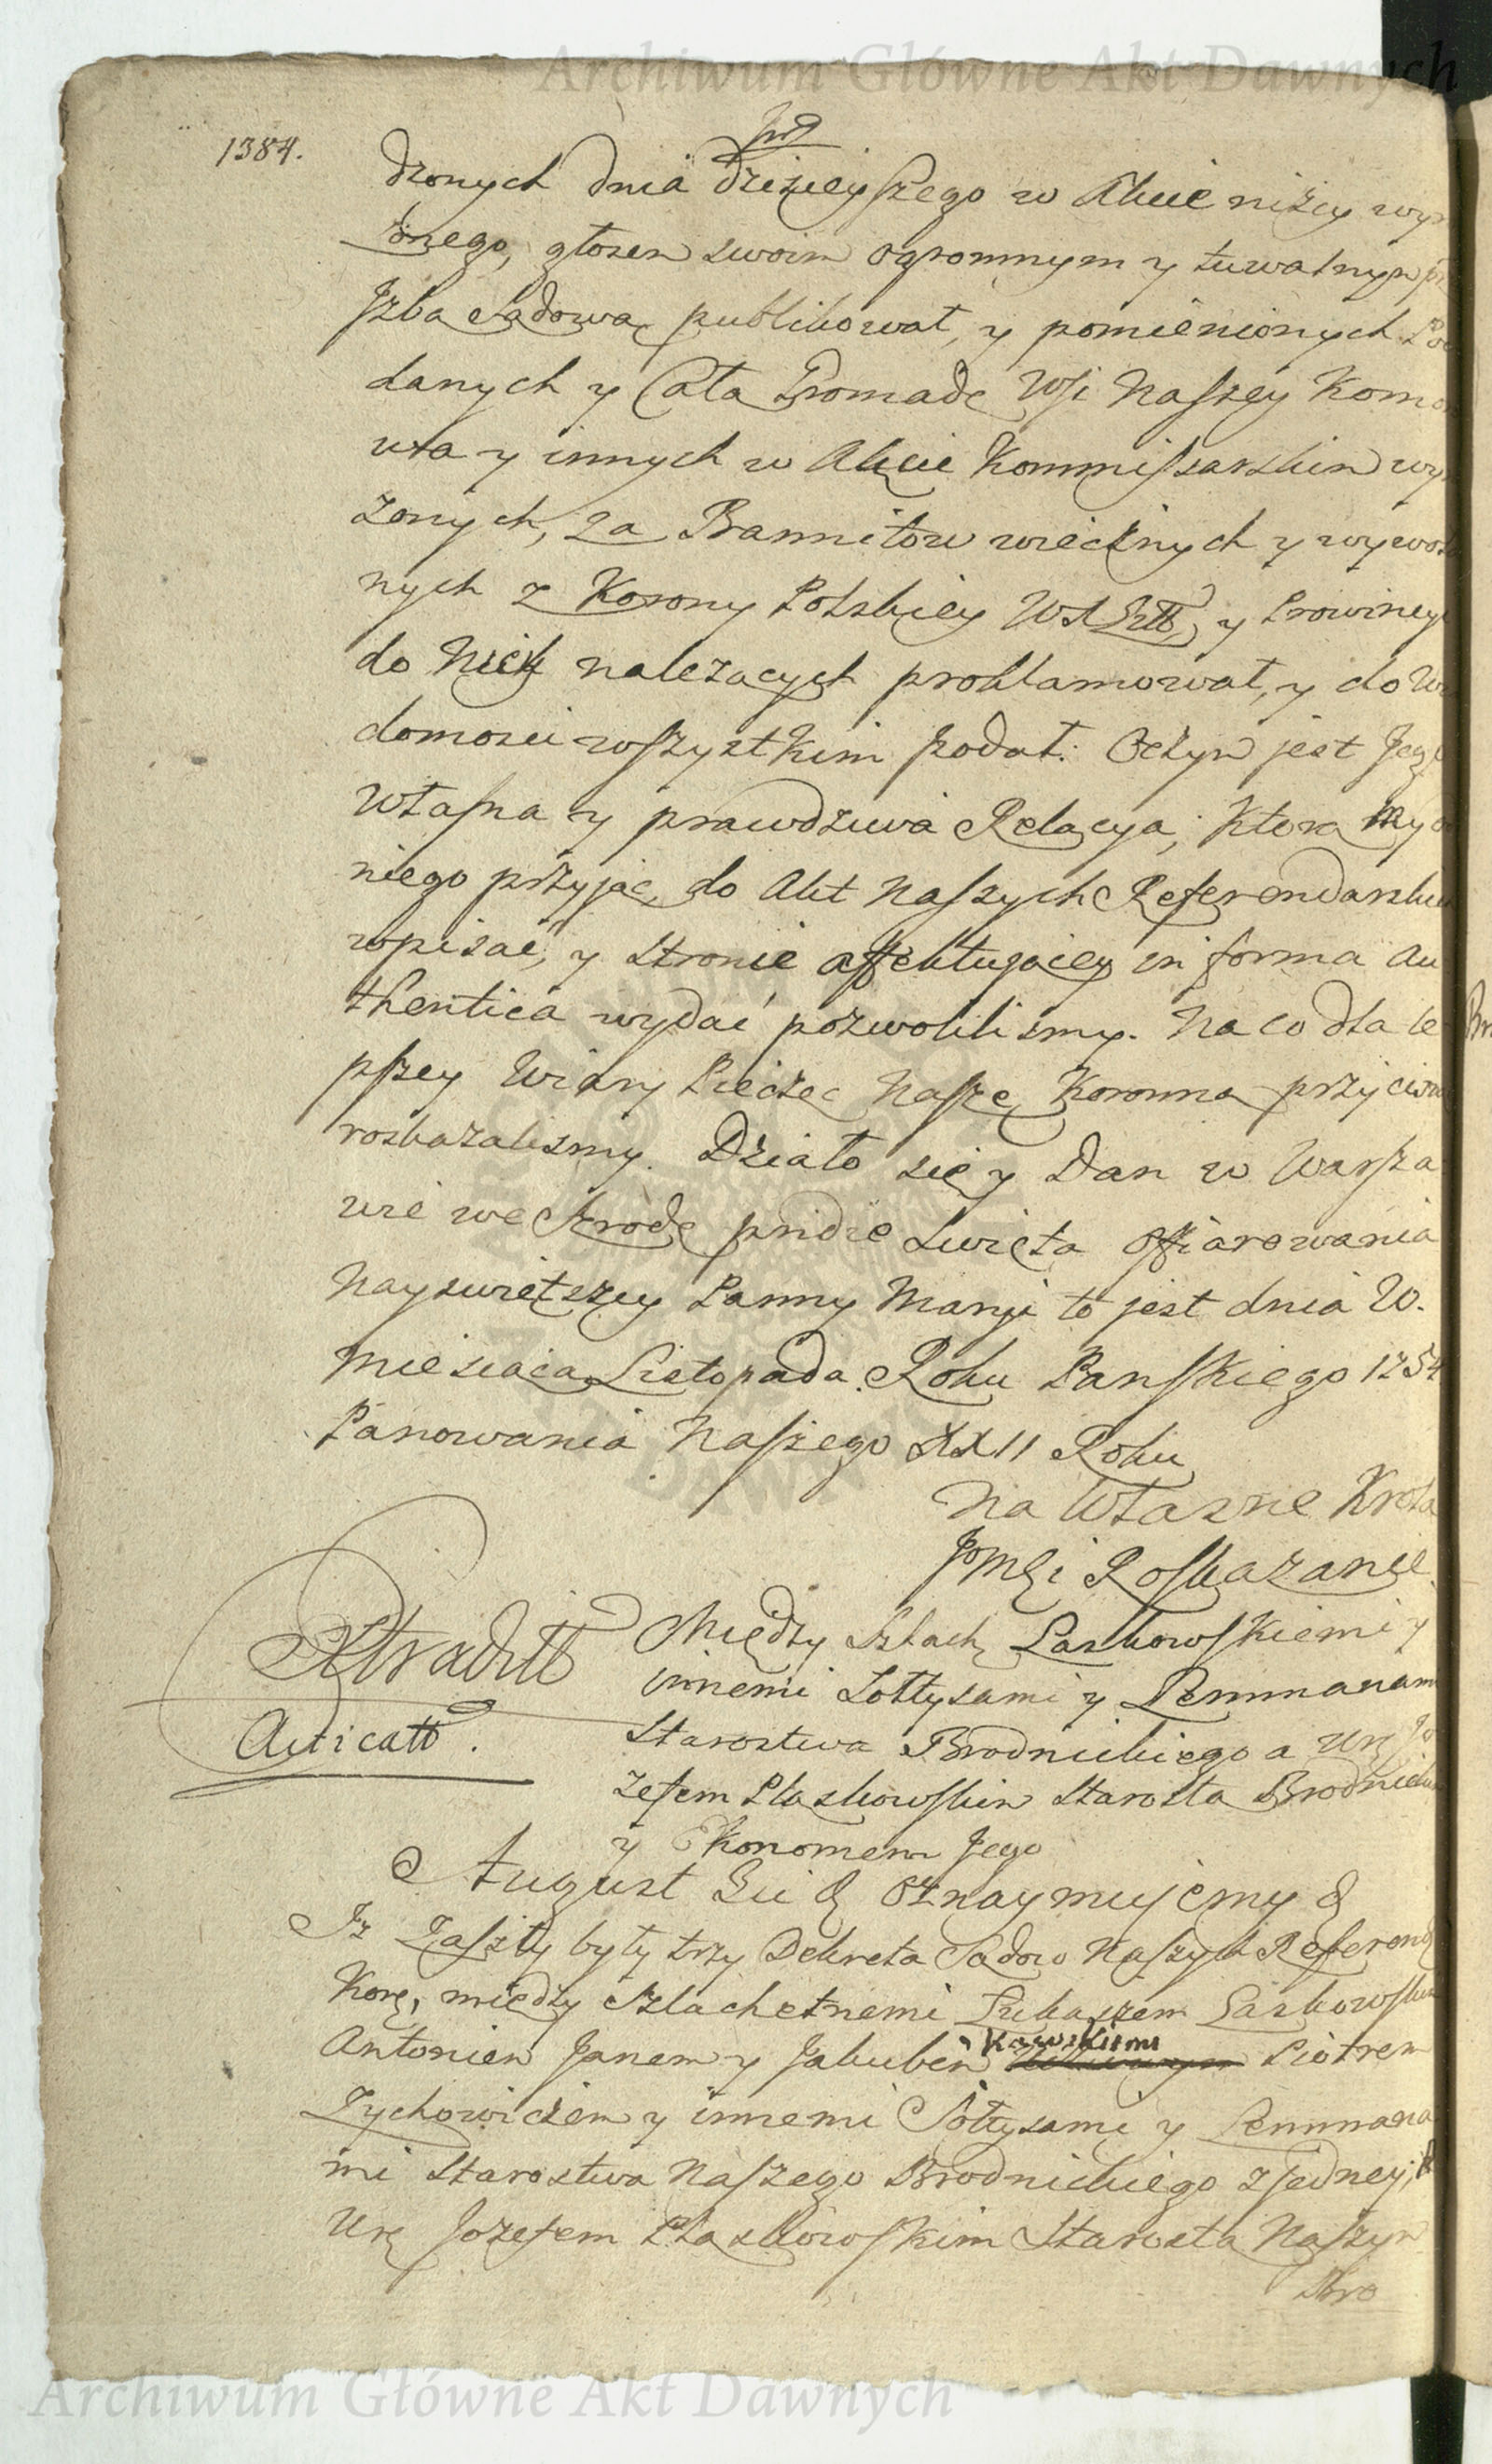 Archiwum Główne Akt Dawnych
1384.
dzonych dnia dzisieyszego w Akcie niżey wy
żonego, głosem swoim ogromnym y tuwalnym
Jzba Sądową publikował, y pomienionych Po
danych y Całą Gromadę Wsi Naszey Komo
wta y innych w Akcie Kommissarskim wy
żonych, za Bannitow wiecznych y wywoła
nych z Korony Polskiey W X Litt y Prowincyi
do Nich należących proklamował, y do Wi
domosci wszystkim podał. Oczym jest Jego
własna y prawdziwa Relacya, ktorą My o
niego przyjąć, do Akt Naszych Referendarskich
wpisać, y stronie affektującey in forma au
thentica wydać pozwolilismy. Na co dla le
pszey Wiary Pieczęć Naszę Koronną przyciśn
roskazalismy. Działo się y Dan w Warsza
wie we Srzodę pridie Swięta Offiarowania
Nayswiętszey Panny Maryi to jest dnia 20.
Miesiąca Listopada Roku Panskiego 1754
Panowania Naszego XXII Roku
Na Własne Krola
Jmći Roskazanie.
Extraditt
Acticatt.
Między Szlach Laskowskiemi y
innemi Sołtysami y Lemmanam
Starostwa Brodnickiego a Ur Jo
zefem Pląskowskim Starostą Brodnick
y Ekonomem Jego
August &c &c Oznaymujemy &
Jż Zaszły były trzy Dekreta Sądow Naszych Referend
Kor, między Szlachetnemi Łukaszem Laskowskim
Antonien Janem y Jakuben Kawskiemi Piotrem
Zychowiczem y innemi Sołtysami y Lemmana
mi Starostwa Naszego Brodnickiego z jedney, a
Ur Jozefem Pląskowskim Starostą Naszym
Bro
Archiwum Główne Akt Dawnych